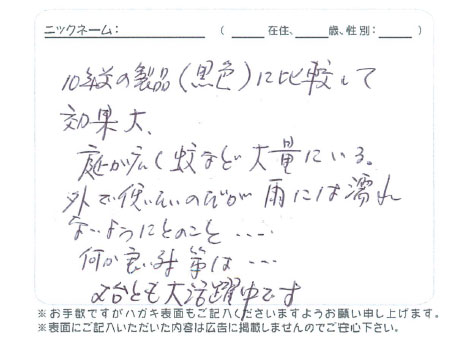 ニックネーム: （ 在住、 歳、性別: ）
10年前の製品（黒色）に比較して
効果大、
庭が広く蚊など大量にいる。
外で使いたいのだが雨には濡れ
ないようにとのこと・・・・
何か良い対策は・・・
2台とも大活躍中です
※お手数ですがハガキ表面もご記入くださいますようお願い申し上げます。
※表面にご記入いただいた内容は広告に掲載しませんのでご安心下さい。